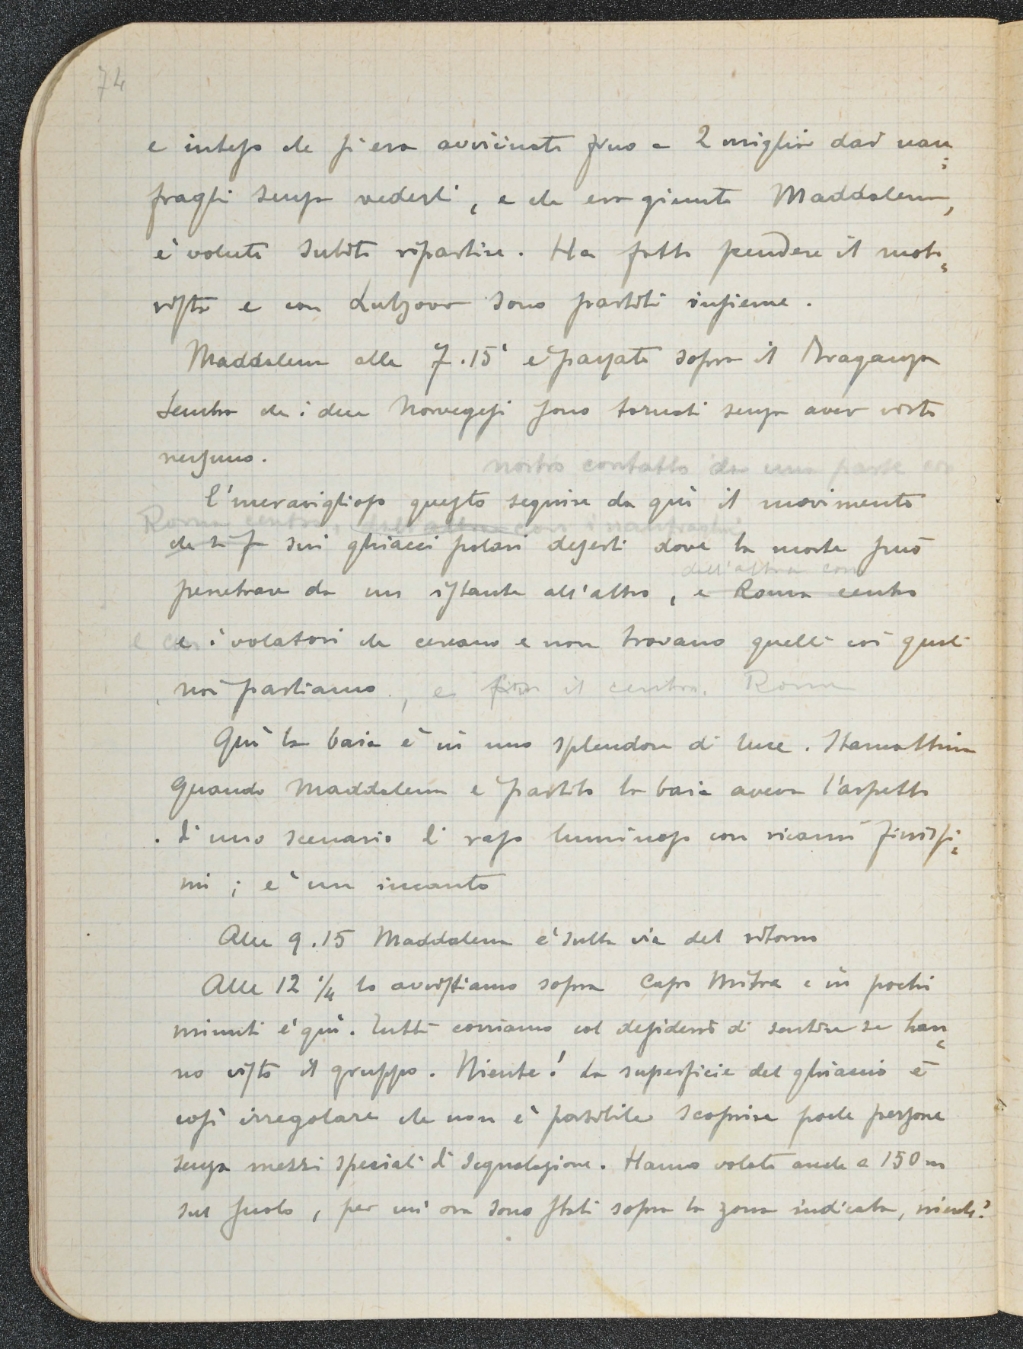 74
e inteso che si era avvicinato fino a 2 miglia dai nau:
fraghi senza vederli, e che era giunto Maddalena,
è voluto subito ripartire. Ha fatto prendere il moto:
rista e con Lutzow sono partiti insieme.
Maddalena alle 7.15' è passato sopra il Braganza
Sembra che i due Norvegesi sono tornati senza aver visto
nessuno.
nostro contatto da una parte con
E' meraviglioso questo seguire da quì il movimento
Roma centro, dall'altra con i naufraghi
che si fa sui ghiacci polari deserti dove la morte può
dall'altra con
penetrare da un istante all'altro, e Roma centro
e con e i volatori che cercano e non trovano quelli coi quali
noi parliamo, e il centro. Roma
Quì la baia è in uno splendore di luce. Stamattina
quando Maddalena è partito la baia aveva l'aspetto
di uno scenario di raso luminoso con ricami finissi:
mi; e' un incanto
Alle 9.15 Maddalena è sulla via del ritorno
Alle 12 1/4 lo avvistiamo sopra Capo Mitra e in pochi
minuti è quì. Tutti corriamo col desiderio di sentire se han:
no visto il gruppo. Niente! La superficie del ghiaccio è
così irregolare che non è possibile scoprire poche persone
senza mezzi speciali di segnalazione. Hanno volato anche a 150 m
sul suolo, per un'ora sono stati sopra la zona indicata, niente!